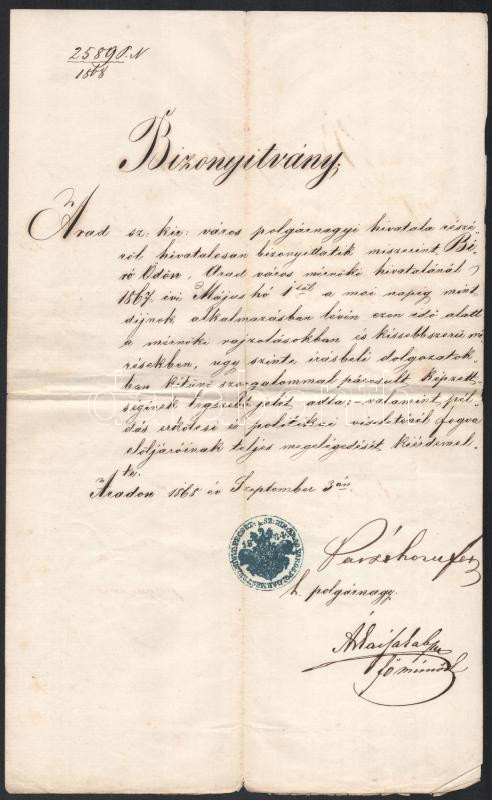 2589 P. N
1868
Bizonyitvány,
Arad sz: kir: város polgárnagyi hivatala részé-
ről hivatalosan bizonyittatik miszerint Bi-
ró Ödön, Arad város mérnöki hivatalánál
1867. évi Május hó 1től a mai napig mint
dijnok alkalmazásban lévén ezen idő alatt
a mérnöki rajzolásokban és kissebbszerü mé-
résekben, ugy szinte irásbeli dolgozatok-
ban kitünő szorgalommal párosult képzett-
ségének legszebb jelét adta, valamint pél-
dás erkölcsi és politikai viseleténél fogva
elöljáróinak teljes megelégedését kiérdemel-
te.
Aradon 1868 év Szeptember 3án
h. polgárnagy.
főmérnök